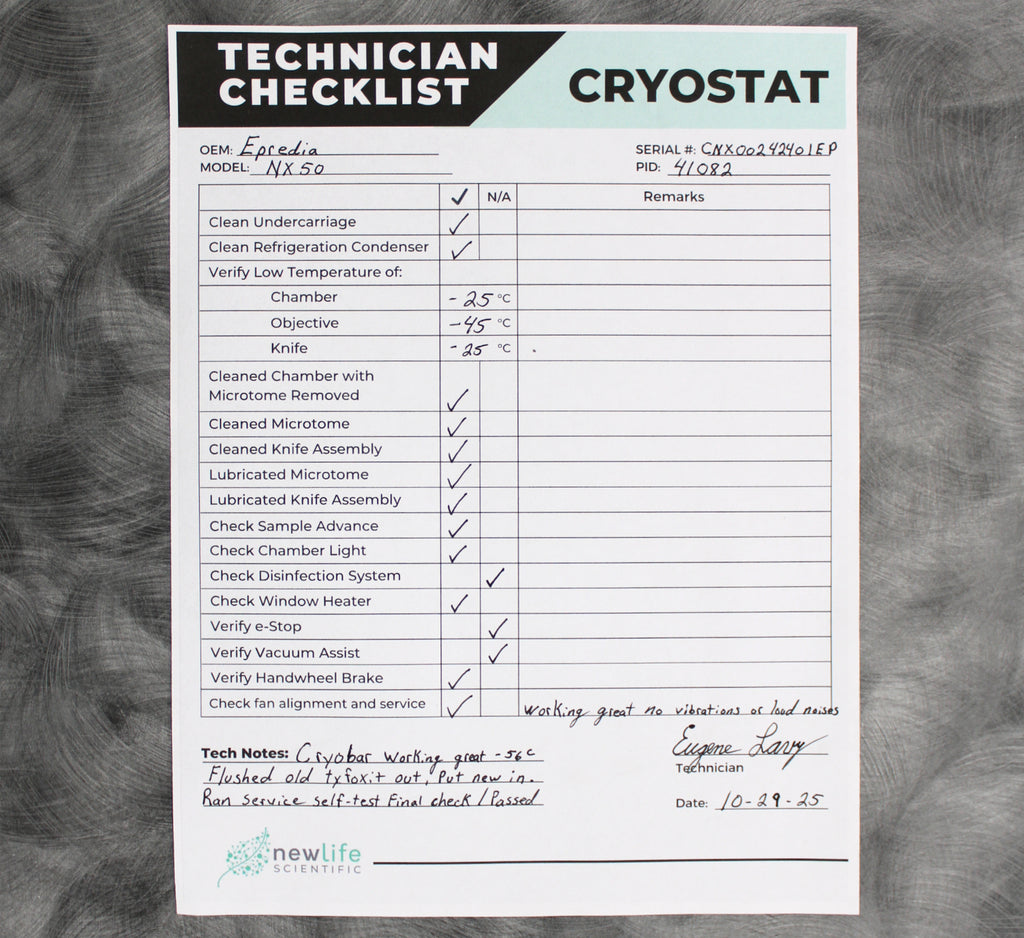 TECHNICIAN
CHECKLIST
CRYOSTAT
OEM: Epredia
SERIAL #: CNX00242401EP
MODEL: NX50
PID: 41082
✓ N/A Remarks
Clean Undercarriage ✓
Clean Refrigeration Condenser ✓
Verify Low Temperature of:
Chamber -25 °C
Objective -45 °C
Knife -25 °C
Cleaned Chamber with
Microtome Removed ✓
Cleaned Microtome ✓
Cleaned Knife Assembly ✓
Lubricated Microtome ✓
Lubricated Knife Assembly ✓
Check Sample Advance ✓
Check Chamber Light ✓
Check Disinfection System ✓
Check Window Heater ✓
Verify e-Stop ✓
Verify Vacuum Assist ✓
Verify Handwheel Brake ✓
Check fan alignment and service ✓ Working great no vibrations or loud noises
Tech Notes: Cryobar working great -56 C
Flushed old tyfoxit out, Put new in.
Ran service self-test Final check / Passed
Eugene Lavy
Technician
Date: 10-29-25
newlife
SCIENTIFIC